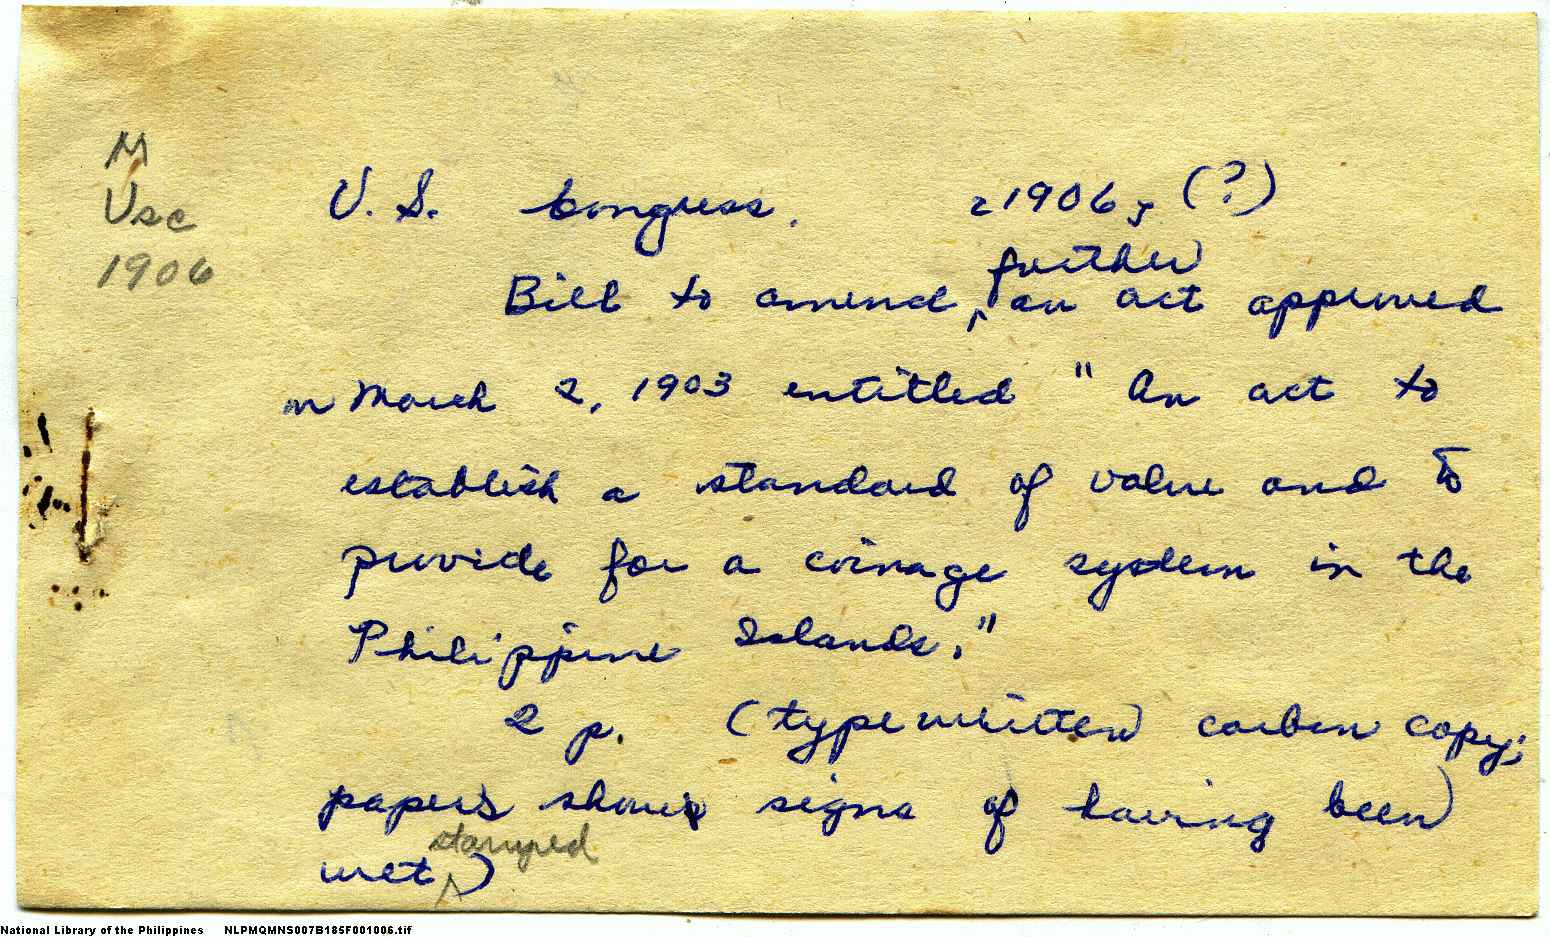 M
Usc
1906
U. S. Congress. [1906] (?)
further
Bill to amend ^ an act approved
on March 2, 1903 entitled "An act to
establish a standard of value and to
provide for a coinage system in the
Philippine Islands."
2 p. (typewritten carbon copy;
papers shows signs of having been
stamped
wet ^)
National Library of the Philippines NLPMQMNS007B185F001006.tif